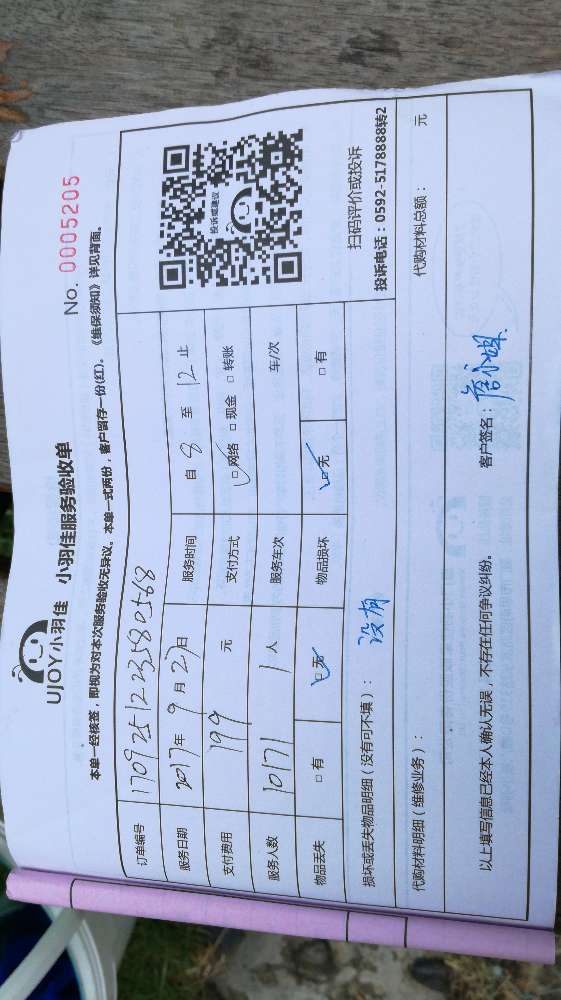 UJOY小羽佳 小羽佳服务验收单
No. 0005205
本单一经核签，即视为对本次服务验收无异议。本单一式两份，客户留存一份(红)。《维保须知》详见背面。
订单编号 1709251223580568
服务日期 2017年 9月 27日 服务时间 自 8 至 12 止
支付费用 199 元 支付方式 □网络 □现金 □转账
服务人数 10171 1人 服务车次 车/次
物品丢失 □有 □无 物品损坏 □无 □有
投诉或建议
扫码评价或投诉
投诉电话：0592-5178888转2
损坏或丢失物品明细（没有可不填）： 没有
代购材料明细（维修业务）： 代购材料总额： 元
以上填写信息已经本人确认无误，不存在任何争议纠纷。 客户签名：詹小姐